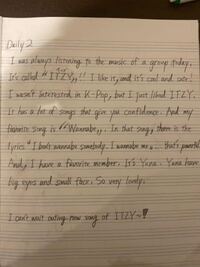 Daily 2
I was always listening to the music of a group today.
It's called "ITZY„!! I like it, and it's cool and cute!
I wasn't interested in K-Pop, but I just liked ITZY.
It has a lot of songs that give you confidence. And my
favorite song is "Wannabe„. In that song, there is the
lyrics "I don't wannabe somebody. I wannabe me„ ... that's powerful.
And, I have a favorite member. It's Yuna. Yuna have
big eyes and small face. So very lovely.
I can't wait outing new song of ITZY~!